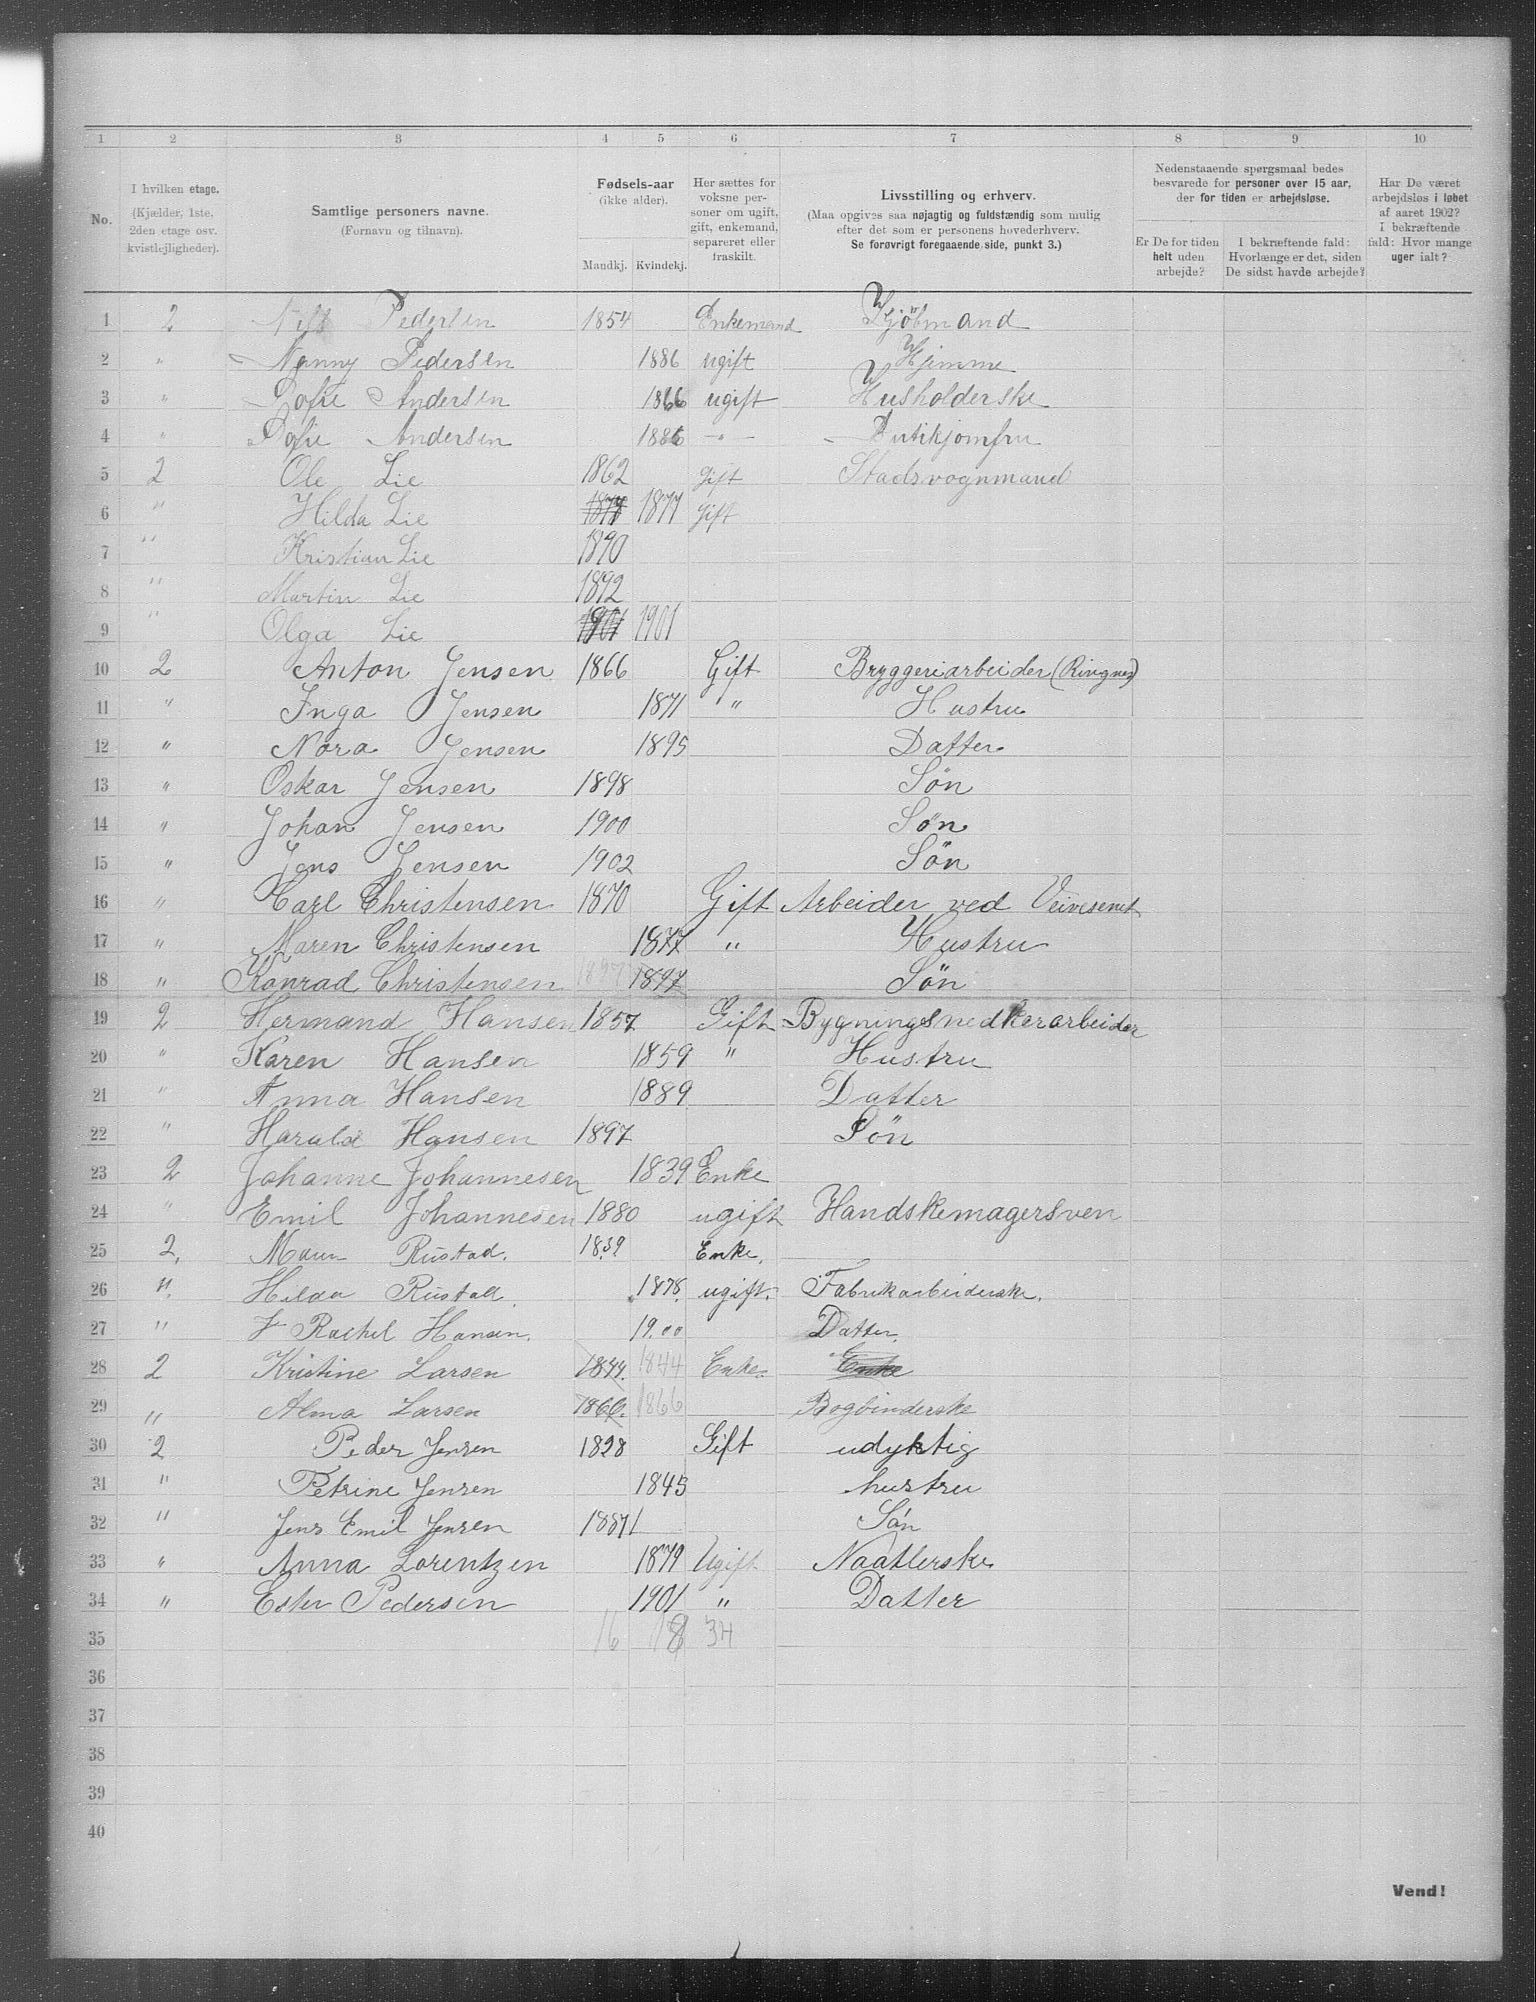 1 2 3 4 5 6 7 8 9 10
No.
I hvilken etage. (Kjælder, 1ste, 2den etage osv. kvistlejligheder).
Samtlige personers navne. (Fornavn og tilnavn).
Fødsels-aar (ikke alder).
Mandkj. Kvindekj.
Her sættes for voksne personer om ugift, gift, enkemand, separeret eller fraskilt.
Livsstilling og erhverv. (Maa opgives saa nøjagtig og fuldstændig som mulig efter det som er personens hovederhverv. Se forøvrigt foregaaende side, punkt 3.)
Nedenstaaende spørgsmaal bedes besvarede for personer over 15 aar, der for tiden er arbejdsløse.
Er De for tiden helt uden arbejde?
I bekræftende fald: Hvorlænge er det, siden De sidst havde arbejde?
Har De været arbejdsløs i løbet af aaret 1902? I bekræftende fald: Hvor mange uger ialt?
1 2 Nils Pedersen 1854 Enkemand Kjöbmand
2 " Nanny Pedersen 1886 ugift Hjemme
3 " Sofie Andersen 1866 ugift Husholderske
4 " Sofie Andersen 1886 - " - Butikjomfru
5 2 Ole Lie 1862 Gift Stadsvognmand
6 " Hilda Lie 1877 1877 Gift
7 " Kristian Lie 1890
8 " Martin Lie 1892
9 " Olga Lie 1901 1901
10 2 Anton Jensen 1866 Gift Bryggeriarbeider (Ringnes)
11 " Inga Jensen 1871 " Hustru
12 " Nora Jensen 1895 Datter
13 " Oskar Jensen 1898 Sön
14 " Johan Jensen 1900 Sön
15 " Jens Jensen 1902 Sön
16 " Carl Christensen 1870 Gift Arbeider ved Veivesenet
17 " Maren Christensen 1877 " Hustru
18 " Konrad Christensen 1897 1897 Sön
19 2 Hermand Hansen 1857 Gift Bygningssnedkerarbeider
20 " Karen Hansen 1859 " Hustru
21 " Anna Hansen 1889 Datter
22 " Harald Hansen 1897 Sön
23 2 Johanne Johannesen 1839 Enke
24 " Emil Johannesen 1880 ugift Handskemagersven
25 2. Maren Rustad. 1839 Enke.
26 ". Hilda Rustad. 1878. ugift. Fabrikarbeiderske.
27 " Rachel Hansen. 19.00 Datter.
28 2 Kristine Larsen 1844. 1844 Enke. Enke
29 " Alma Larsen 1866. 1866 Bogbinderske
30 2 Peder Jensen 1828 Gift udyktig
31 " Petrine Jensen 1845 hustru
32 " Jens Emil Jensen 1887 Sön
33 " Anna Lorentzen 1879 Ugift Naatlerske
34 " Ester Pedersen 1901 " Datter
35 16 18 34
36
37
38
39
40
Vend!